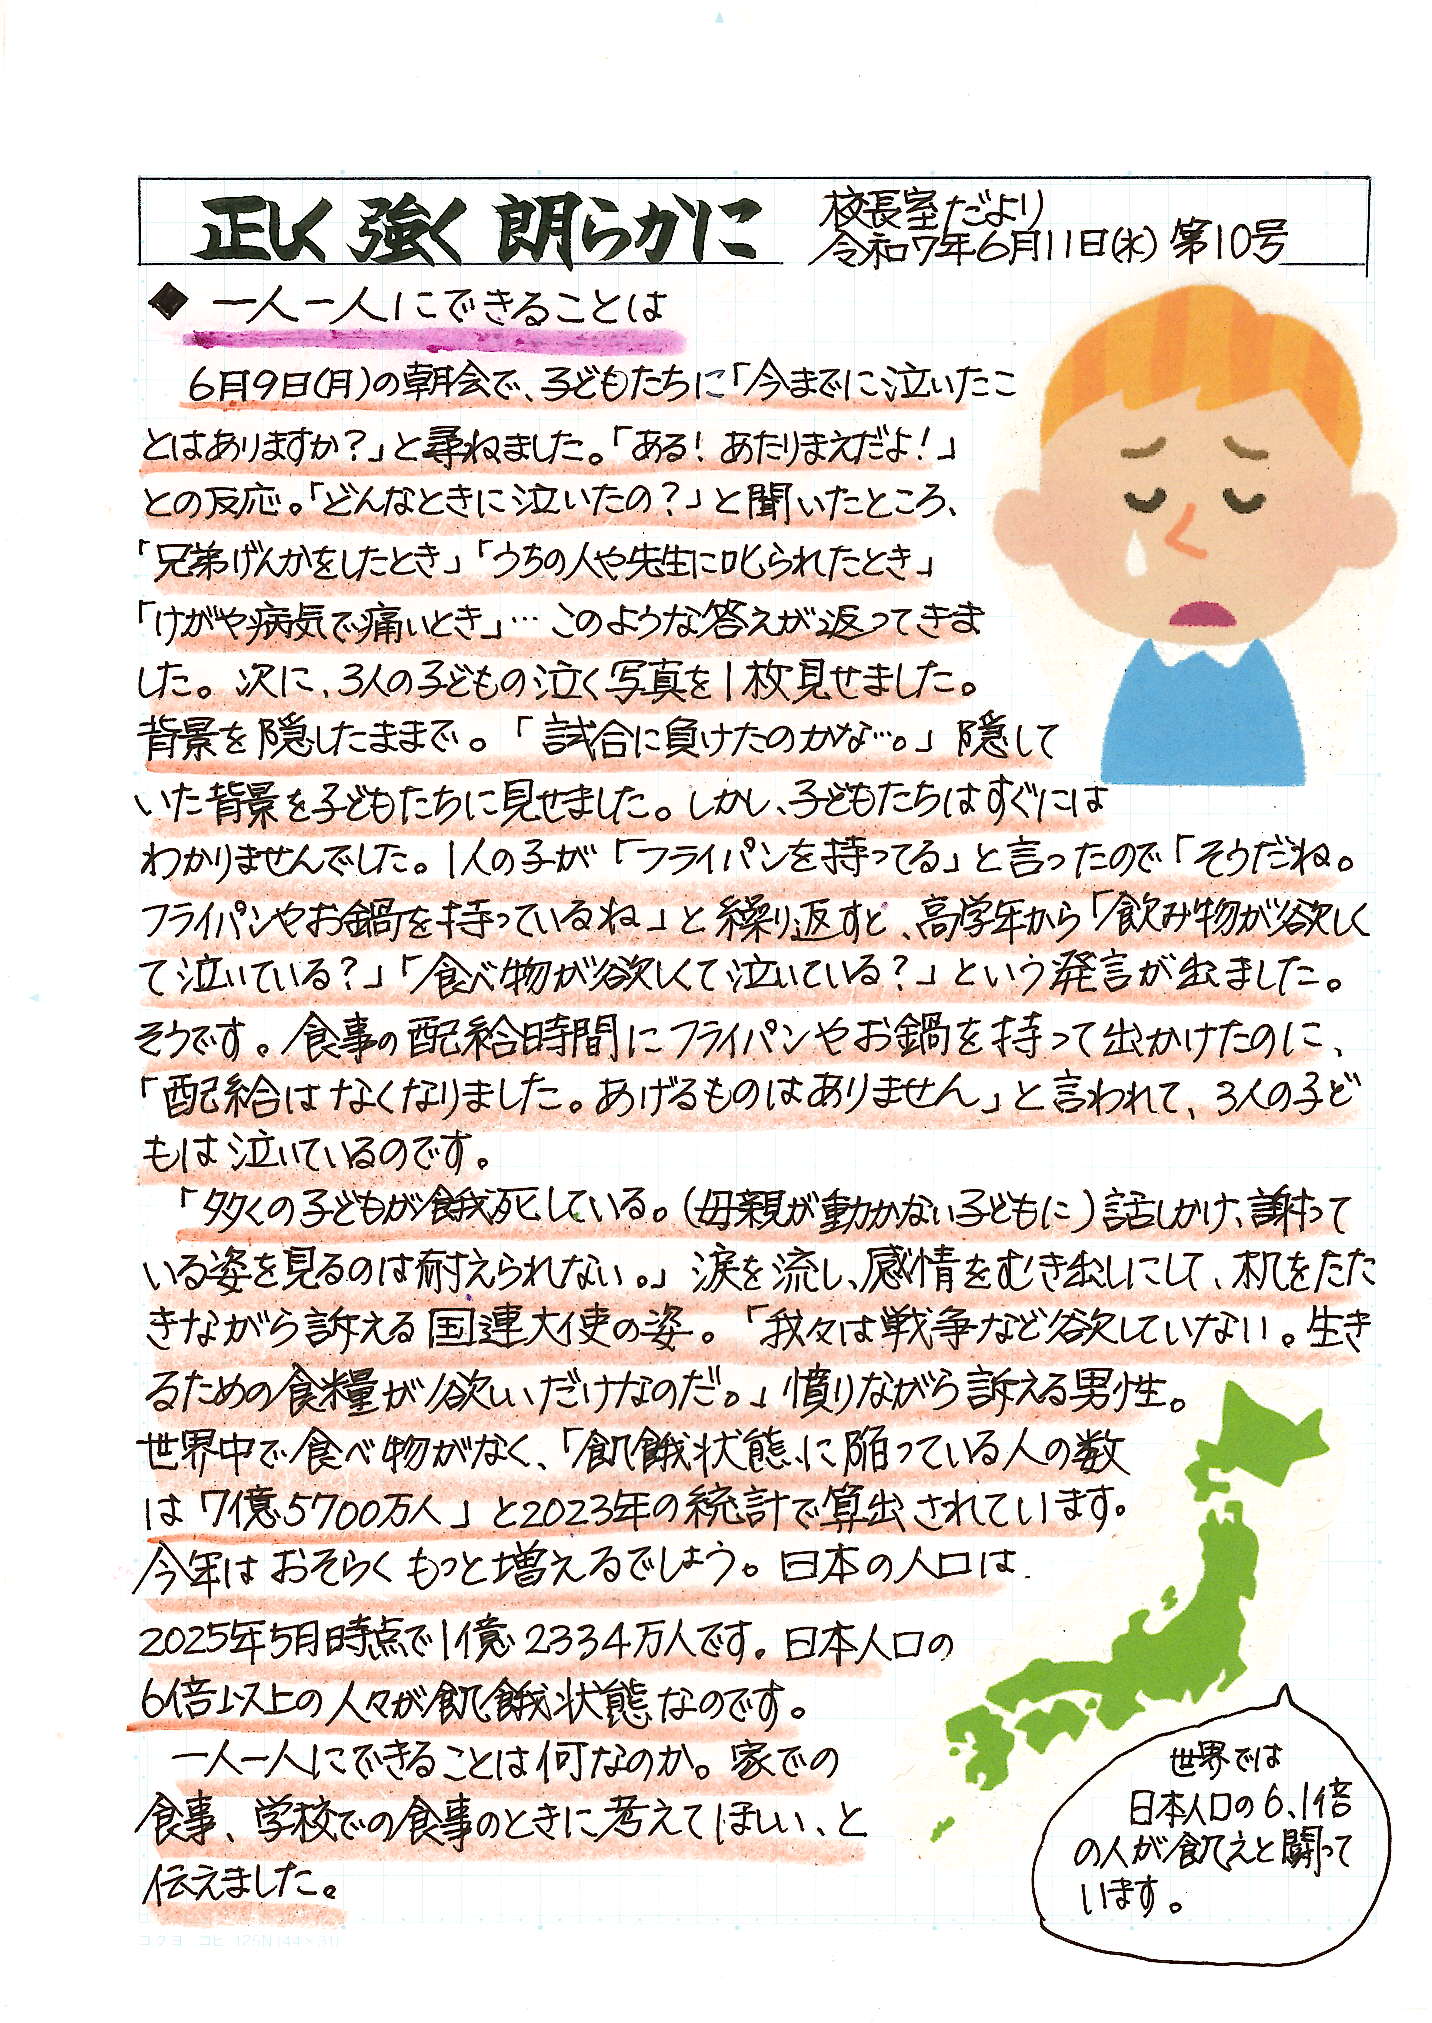 正しく 強く 朗らかに
校長室だより
令和7年6月11日(水) 第10号
◆ 一人一人にできることは
6月9日(月)の朝会で、子どもたちに「今までに泣いたこ
とはありますか？」と尋ねました。「ある！あたりまえだよ！」
との反応。「どんなときに泣いたの？」と聞いたところ、
「兄弟げんかをしたとき」「うちの人や先生に叱られたとき」
「けがや病気で痛いとき」…このような答えが返ってきま
した。次に、3人の子どもの泣く写真を1枚見せました。
背景を隠したままで。「試合に負けたのかな…。」隠して
いた背景を子どもたちに見せました。しかし、子どもたちはすぐには
わかりませんでした。1人の子が「フライパンを持ってる」と言ったので「そうだね。
フライパンやお鍋を持っているね」と繰り返すと、高学年から「飲み物が欲しく
て泣いている？」「食べ物が欲しくて泣いている？」という発言が出ました。
そうです。食事の配給時間にフライパンやお鍋を持って出かけたのに、
「配給はなくなりました。あげるものはありません」と言われて、3人の子ど
もは泣いているのです。
「多くの子どもが餓死している。(母親が動かない子どもに)話しかけ、謝って
いる姿を見るのは耐えられない。」涙を流し、感情をむき出しにして、机をたた
きながら訴える国連大使の姿。「我々は戦争など欲していない。生き
るための食糧が欲しいだけなのだ。」憤りながら訴える男性。
世界中で食べ物がなく、「飢餓状態に陥っている人の数
は7億5700万人」と2023年の統計で算出されています。
今年はおそらくもっと増えるでしょう。日本の人口は
2025年5月時点で1億2334万人です。日本人口の
6倍以上の人々が飢餓状態なのです。
一人一人にできることは何なのか。家での
食事、学校での食事のときに考えてほしい、と
伝えました。
世界では
日本人口の6.1倍
の人が飢えと闘って
います。